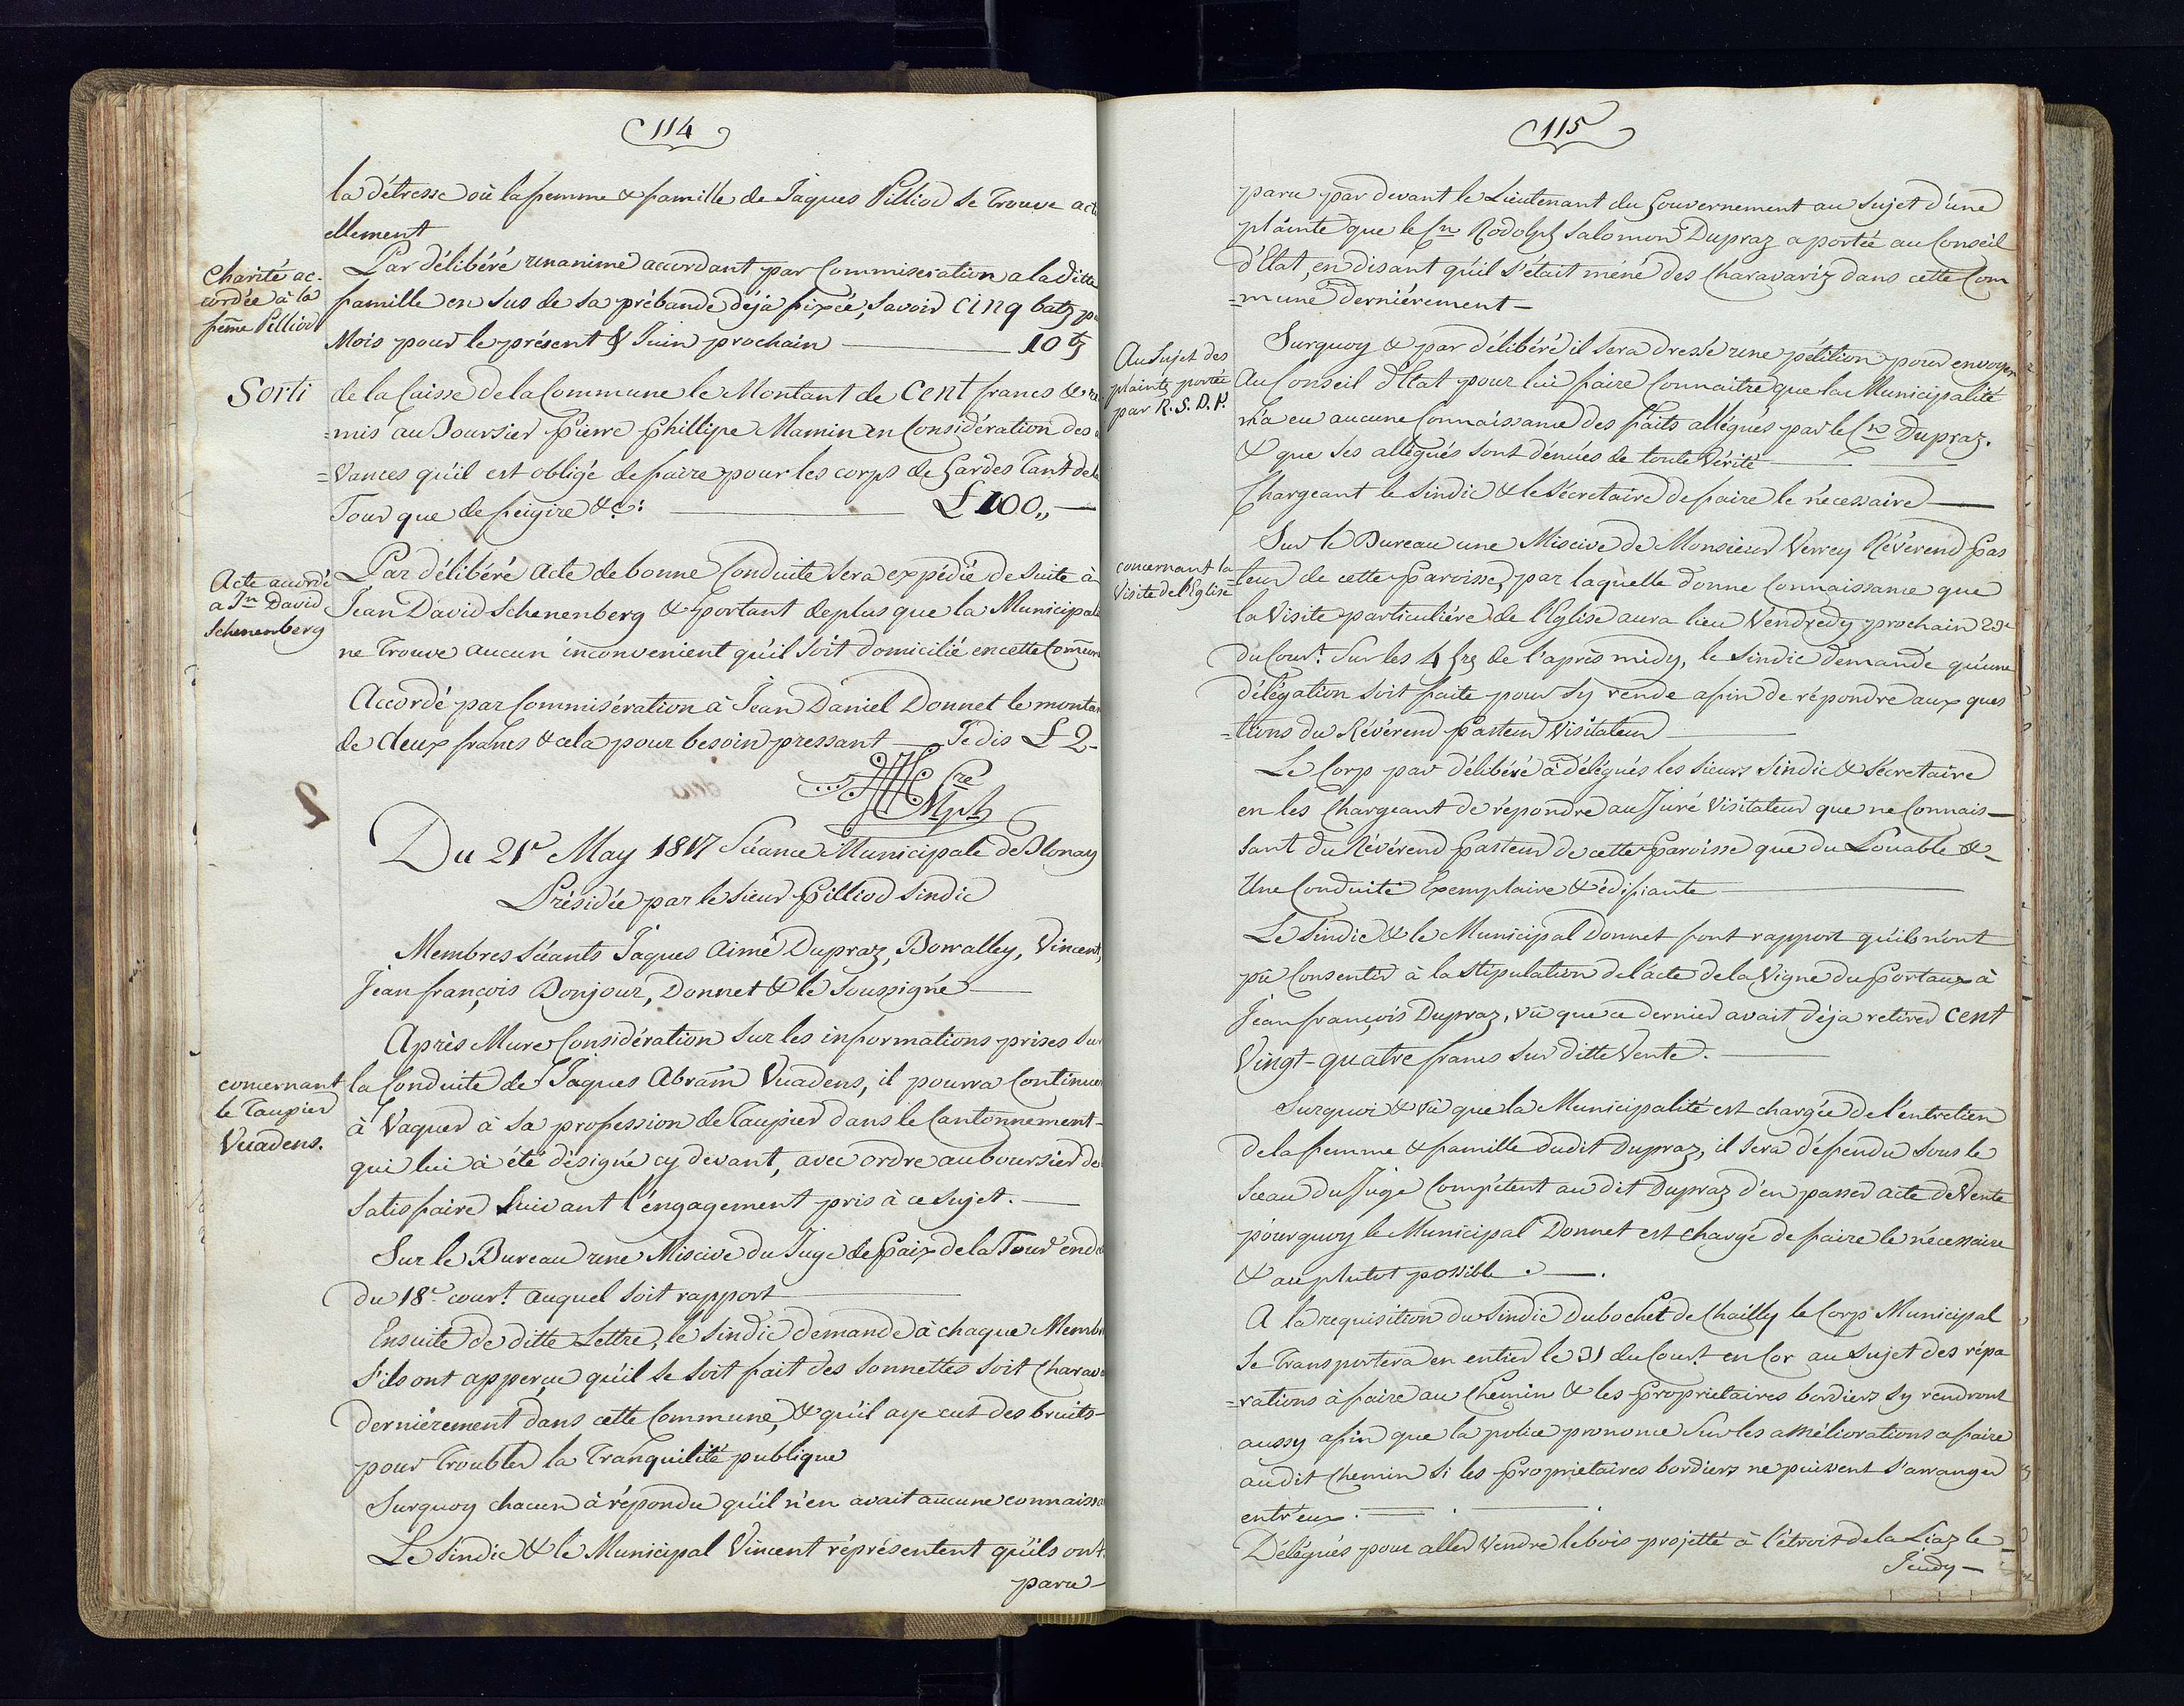 114
la détresse où la femme & famille de Jaques Pilliod se trouve actu
ellement
Charité ac-
cordée à la
feme Pilliod
Par délibéré unanime accordant par Commiseration a la ditte
famille en sus de sa prébande déja fixée, Savoir cinq batz p
Mois pour le présent & Juin prochain — 10 bz
Sorti
de la Caisse de la Commune le Montant de Cent francs & re
=mis au Boursier Pierre Phillipe Mamin en Considération des a
=vances qu'il est obligé de faire pour les corps de Gardes tant de la
Tour que de feigire &c: — £ 100,,—
Acte accordé
a Jn David
Schenenberg
Par délibéré Acte de bonne Conduite sera expédié de suite à
Jean David Schenenberg & portant de plus que la Municipali
ne trouve aucun inconvenient qu'il soit domicilié en cette Comune
Accordé par Commisération à Jean Daniel Donnet le montan
de deux francs & cela pour besoin pressant — Je dis £ 2-
Cre
Mplt
Du 21e May 1817 Séance Municipale de Blonay
Présidée par le Sieur Pilliod Sindic
Membres Séants Jaques Aimé Dupraz, Bonvalley, Vincent,
Jean françois Bonjour, Donnet & le Soussigné —
concernant
le Taupier
Vuadens.
Après Mure Considération sur les informations prises sur
la Conduite de Jaques Abram Vuadens, il pourra Continuer
à Vaquer à sa profession de Taupier dans le Cantonnement-
qui lui à été désigné cy devant, avec ordre au boursier de
Satisfaire Suivant l'engagement pris à ce sujet. —
Sur le Bureau une Miscive du Juge de Paix de la Tour en da
du 18e court auquel soit rapport —
Ensuite de ditte Lettre, le Sindic demande à chaque Membr
S'ils ont apperçu qu'il se soit fait des Sonnettes soit Charava
derniérement dans cette Commune, & qu'il aye eut des bruits-
pour troubler la Tranquilité publique
Surquoy chacun à répondu qu'il n'en avait aucune connaissa
Le Sindic & le Municipal Vincent réprésentent qu'ils ont
paru-
115
paru par devant le Lieutenant du Gouvernement au Sujet d'une
plainte que le Cn Rodolph Salomon Dupraz a portée au Conseil
d'Etat, en disant qu'il s'était mené des Charavariz dans cette Com
=mune derniérement —
Au Sujet des
plaintz portée
par R. S. D. P.
Surquoy & par délibéré il sera dressé une pétition pour envoyer
Au Conseil d'Etat pour lui faire Connaitre que la Municipalité
n'a eu aucune Connaissance des faits allégués par le Cn Dupraz.
& que ses allégués sont dénués de toute Vérité —
Chargeant le Sindic & le Sécretaire de faire le nécessaire —
concernant la
Visite de l'Eglise
Sur le Bureau une Miscive de Monsieur Verrey Révérend Pas
=teur de cette Paroisse, par laquelle donne Connaissance que
la Visite particuliére de l'Eglise aura lieu Vendredy prochain 23e
du Court sur les 4 hrs de l'après midy, le Sindic demande qu'une
délégation soit faite pour sy rende afin de répondre aux ques
=tions du Révérend Pasteur Visitateur —
Le Corp par délibéré à délégués les Sieurs Sindic & Sécretaire
en les Chargeant de répondre au Juré Visitateur que ne Connais—
sant du Révérend Pasteur de cette Paroisse que du Louable &-
Une Conduite Exemplaire & édifiante —
Le Sindic & le Municipal Donnet font rapport qu'ils n'ont
pû Consentir à la Stipulation de l'acte de la Vigne du Portaux à
Jean françois Dupraz, vû que ce dernier avait déja retirer cent
Vingt-quatre francs sur ditte Vente. —
Surquoi & vû que la Municipalité est chargée de l'entretien
de la femme & famille dudit Dupraz, il sera défendu sous le
Sceau du Juge Compétent au dit Dupraz d'en passer acte de Vente
pourquoy le Municipal Donnet est chargé de faire le nécessaire
& au plutot possible . —.
A la requisition du Sindic Dubochet de Chailly le Corps Municipal
Se Transportera en entier le 31 du Court en Cor au Sujet des répa
=rations à faire au Chemin & les Proprietaires bordiers sy rendront
aussy afin que la police prononce sur les améliorations a faire
audit Chemin Si les Proprietaires bordiers ne puissent s'arranger
entr'eux. —
Délégués pour aller Vendre le bois projetté à l'étroit de la Liaz le—
Jeudy—